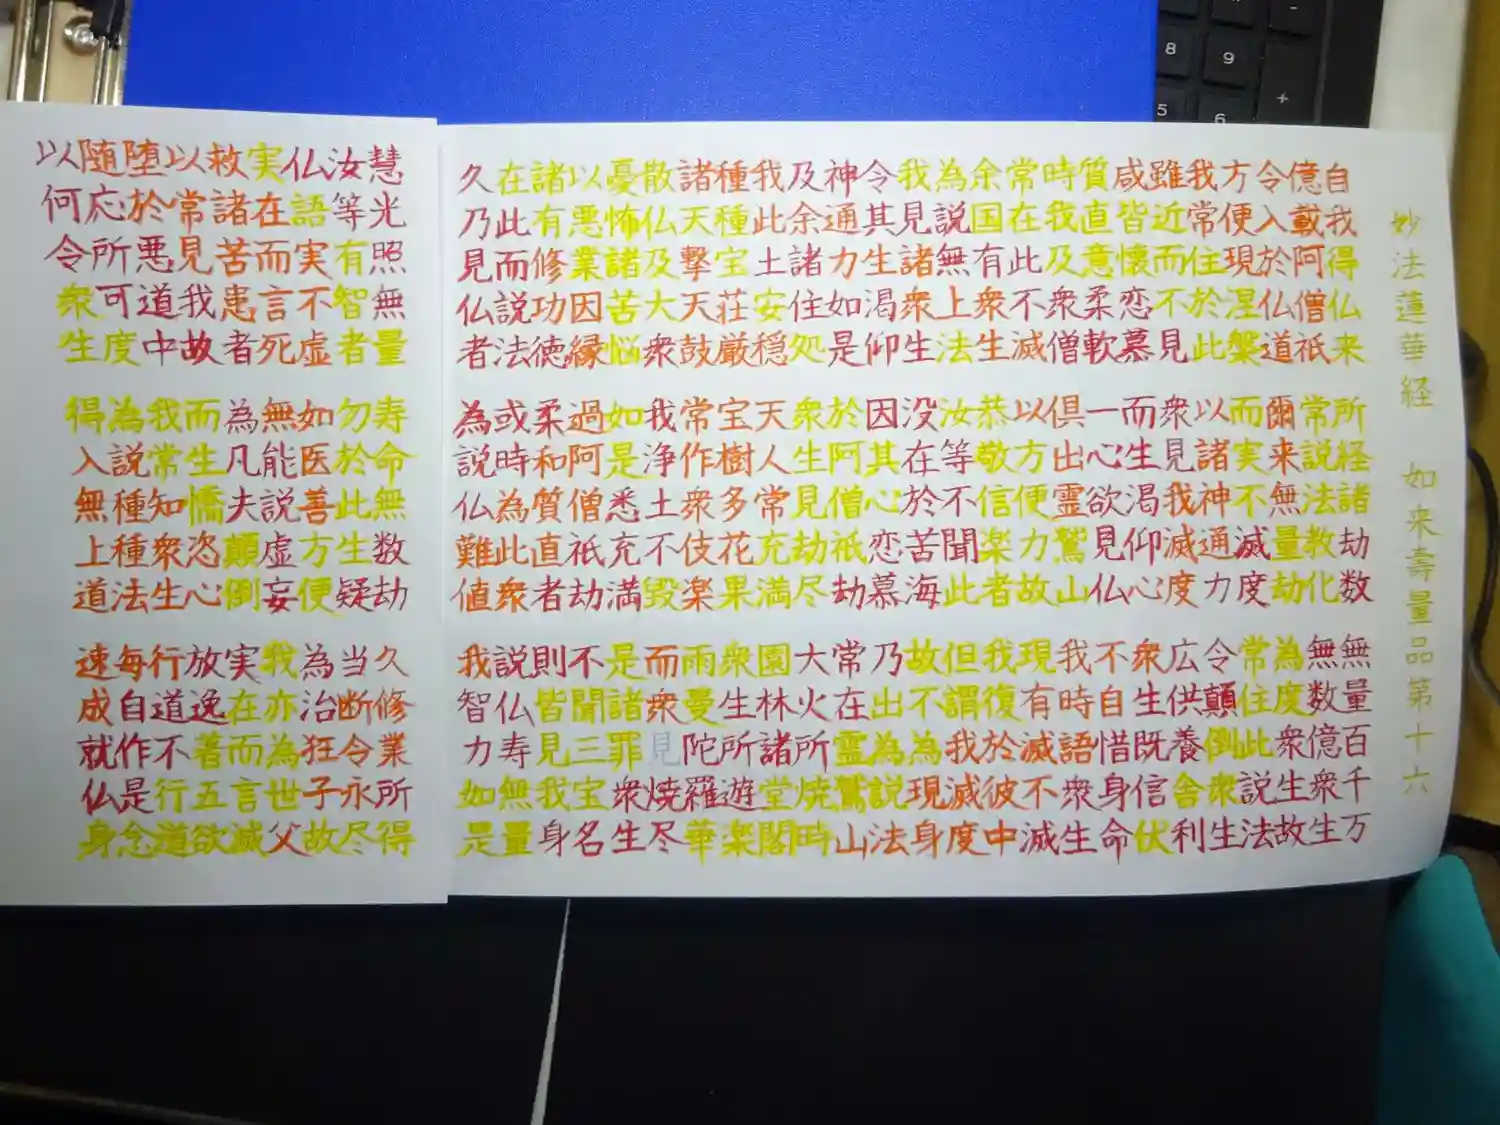 妙法蓮華経 如来壽量品第十六
自我得仏来 所経諸劫数 無量百千万
億載阿僧祇 常説法教化 無数億衆生
令入於仏道 爾来無量劫 為度衆生故
方便現涅槃 而実不滅度 常住此説法
我常住於此 以諸神通力 令顛倒衆生
雖近而不見 衆見我滅度 広供養舎利
咸皆懐恋慕 而生渇仰心 衆生既信伏
質直意柔軟 一心欲見仏 不自惜身命
時我及衆僧 倶出霊鷲山 我時語衆生
常在此不滅 以方便力故 現有滅不滅
余国有衆生 恭敬信楽者 我復於彼中
為説無上法 汝等不聞此 但謂我滅度
我見諸衆生 没在於苦海 故不為現身
令其生渇仰 因其心恋慕 乃出為説法
神通力如是 於阿僧祇劫 常在霊鷲山
及余諸住処 衆生見劫尽 大火所焼時
我此土安穏 天人常充満 園林諸堂閣
種種宝荘厳 宝樹多花果 衆生所遊楽
諸天撃天鼓 常作衆伎楽 雨曼陀羅華
散仏及大衆 我浄土不毀 而衆見焼尽
憂怖諸苦悩 如是悉充満 是諸罪衆生
以悪業因縁 過阿僧祇劫 不聞三宝名
諸有修功徳 柔和質直者 則皆見我身
在此而説法 或時為此衆 説仏寿無量
久乃見仏者 為説仏難値 我智力如是
慧光照無量 寿命無数劫 久修業所得
汝等有智者 勿於此生疑 当断令永尽
仏語実不虚 如医善方便 為治狂子故
実在而言死 無能説虚妄 我亦為世父
救諸苦患者 為凡夫顛倒 実在而言滅
以常見我故 而生憍恣心 放逸著五欲
堕於悪道中 我常知衆生 行道不行道
随応所可度 為説種種法 毎自作是念
以何令衆生 得入無上道 速成就仏身
8
9
-
+
5
6